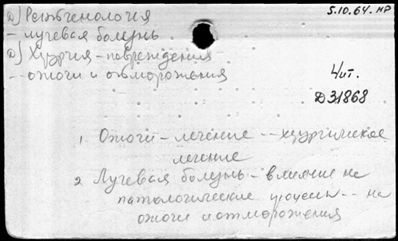 а) Рентгенология
5.10.64. НР
- лучевая болезнь.
а) Хирургия - повреждения
-- ожоги и отморожения
Чит.
Д31868
1. Ожоги - лечение -- хирургическое
лечение
2. Лучевая болезнь - влияние на
патологические процессы -- на
ожоги и отморожения